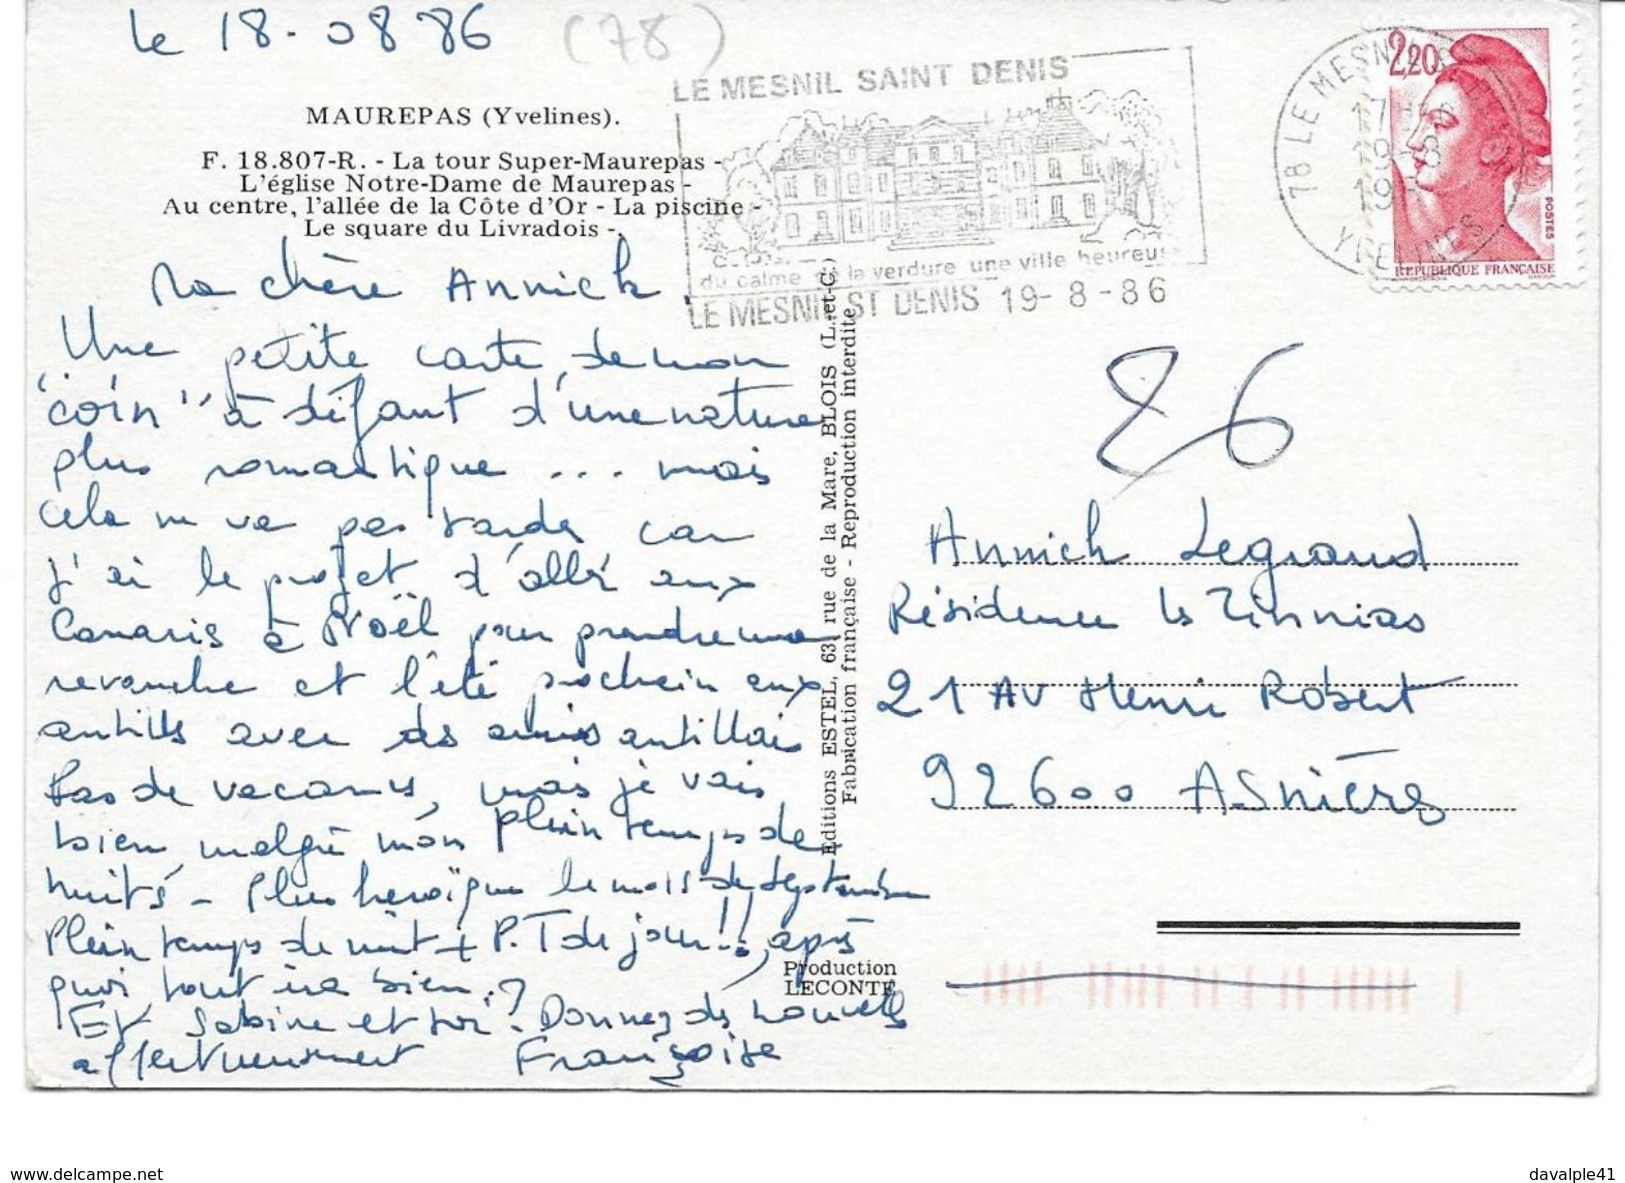 le 18-08 86
(78)
MAUREPAS (Yvelines).
F. 18.807-R. - La tour Super-Maurepas -
L'église Notre-Dame de Maurepas -
Au centre, l'allée de la Côte d'Or - La piscine -
Le square du Livradois -
LE MESNIL SAINT DENIS
du calme de la verdure une ville heureuse
LE MESNIL ST DENIS 19-8-86
78 LE MESNIL ST DENIS
17H
19-8
19
YVELINES
2,20
POSTES
REPUBLIQUE FRANÇAISE
Ma chère Annick
Une petite carte de mon
"coin" à défaut d'une nature
plus romantique ... mais
cela ne va pas tarder car
j'ai le projet d'allér aux
Canaris à Noël pour prendre ma
revanche et l'été prochain aux
antilles avec des amis antillais
Pas de vacances, mais je vais
bien malgré mon plein temps de
nuits - Plus heroïque le mois de Septembre
Plein temps de nuit + P.T de jour!!, après
quoi tout ira bien.
Et Sabine et toi? Donnez des nouvelles
affectueusement Françoise
Editions ESTEL, 63, rue de la Mare, BLOIS (L.-et-C.)
Fabrication française - Reproduction interdite
86
Annick Legrand
Résidence les Zinnias
21 AV Henri Robert
92600 ASnières
Production
LECONTE
www.delcampe.net
davalple41